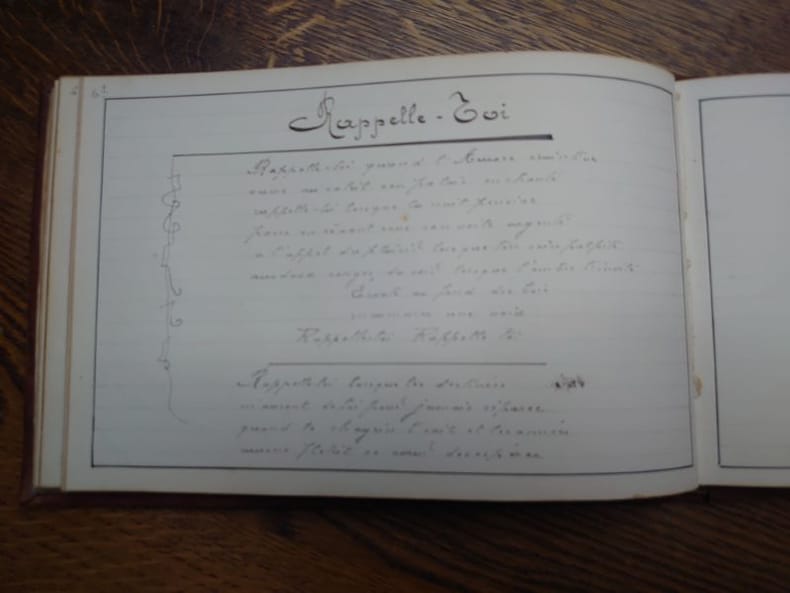 Rappelle-Toi
Rappelle-toi quand l'Aurore
ouvre au soleil son palais enchanté
rappelle-toi lorsque la nuit pensive
passe en rêvant sous son voile argenté
a l'appel du plaisir lorsque ton sein palpite
aux doux songes du soir lorsque l'ombre t'invite
Ecoute au fond des bois
murmurer une voix
Rappelle toi Rappelle toi
Rappelle toi lorsque les destinées
m'auront de toi pour jamais séparée
quand le chagrin l'exil et les années
auront flétri ce cœur désespéré